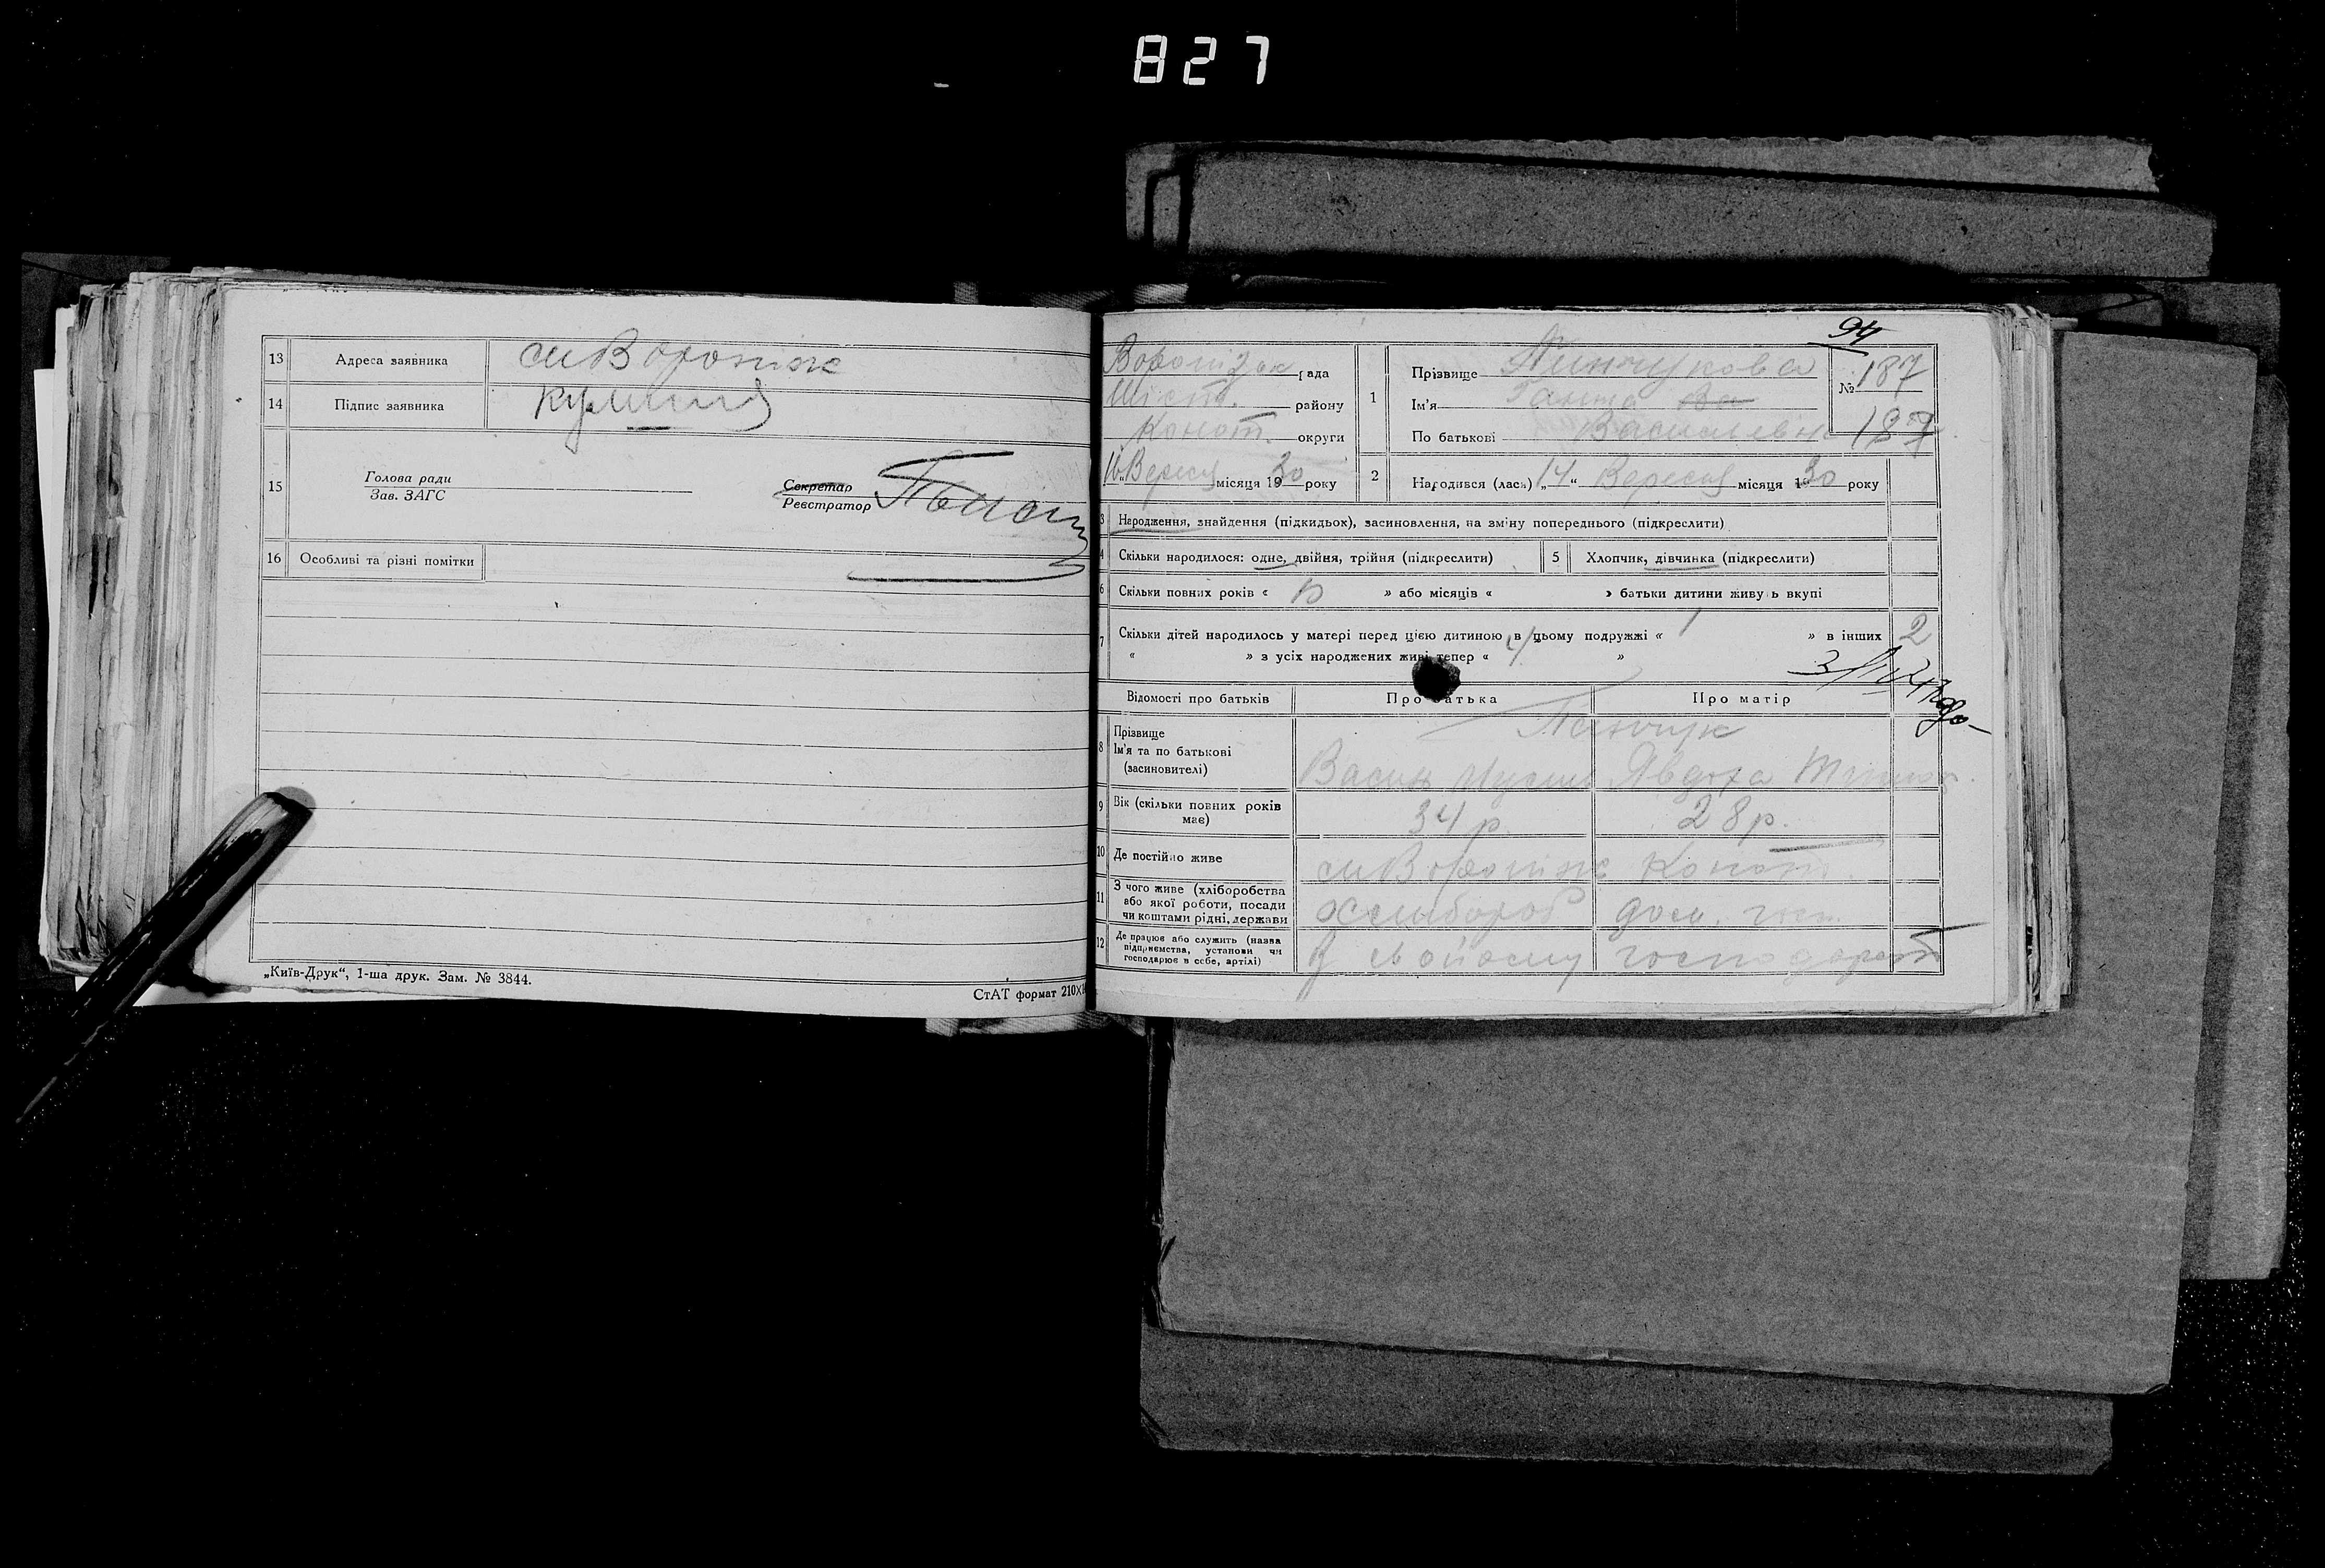 827
13 Адреса заявника см Вороніж
14 Підпис заявника
15 Голова ради
Зав. ЗАГС
Секретар
Реєстратор
16 Особливі та різні помітки
„Київ-Друк“, 1-ша друк. Зам. № 3844.
СтАТ формат 210×
94
рада
Шіст. району
Конот. округи
16 Вересня місяця 1930 року
1 Прізвище
Ім'я Ганна
По батькові Василевна
№ 187
187
2 Народився (лась) „14“ Вересня місяця 1930 року
3 Народження, знайдення (підкидьок), засиновлення, на зміну попереднього (підкреслити)
4 Скільки народилося: одне, двійня, трійня (підкреслити) 5 Хлопчик, дівчинка (підкреслити)
6 Скільки повних років « » або місяців « » батьки дитини живуть вкупі
7 Скільки дітей народилось у матері перед цією дитиною в цьому подружжі « 1 » в інших 2
« » з усіх народжених живі тепер « 4 »
Відомості про батьків Про батька Про матір
8 Прізвище
Ім'я та по батькові Явдоха
(засновителі)
9 Вік (скільки повних років має) 34 р. 28 р.
10 Де постійно живе см Вороніж Конот.
11 З чого живе (хліборобства
або якої роботи, посади
чи коштами рідні, держави хлібороб дом. госп.
12 Де працює або служить (назва
підприємства, установи чи
господарює в себе, артілі) В свойому господарст